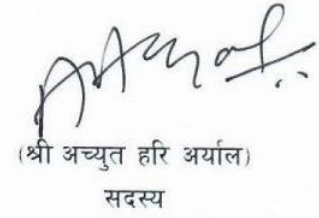 (श्री अच्युत हरि अर्याल)
सदस्य